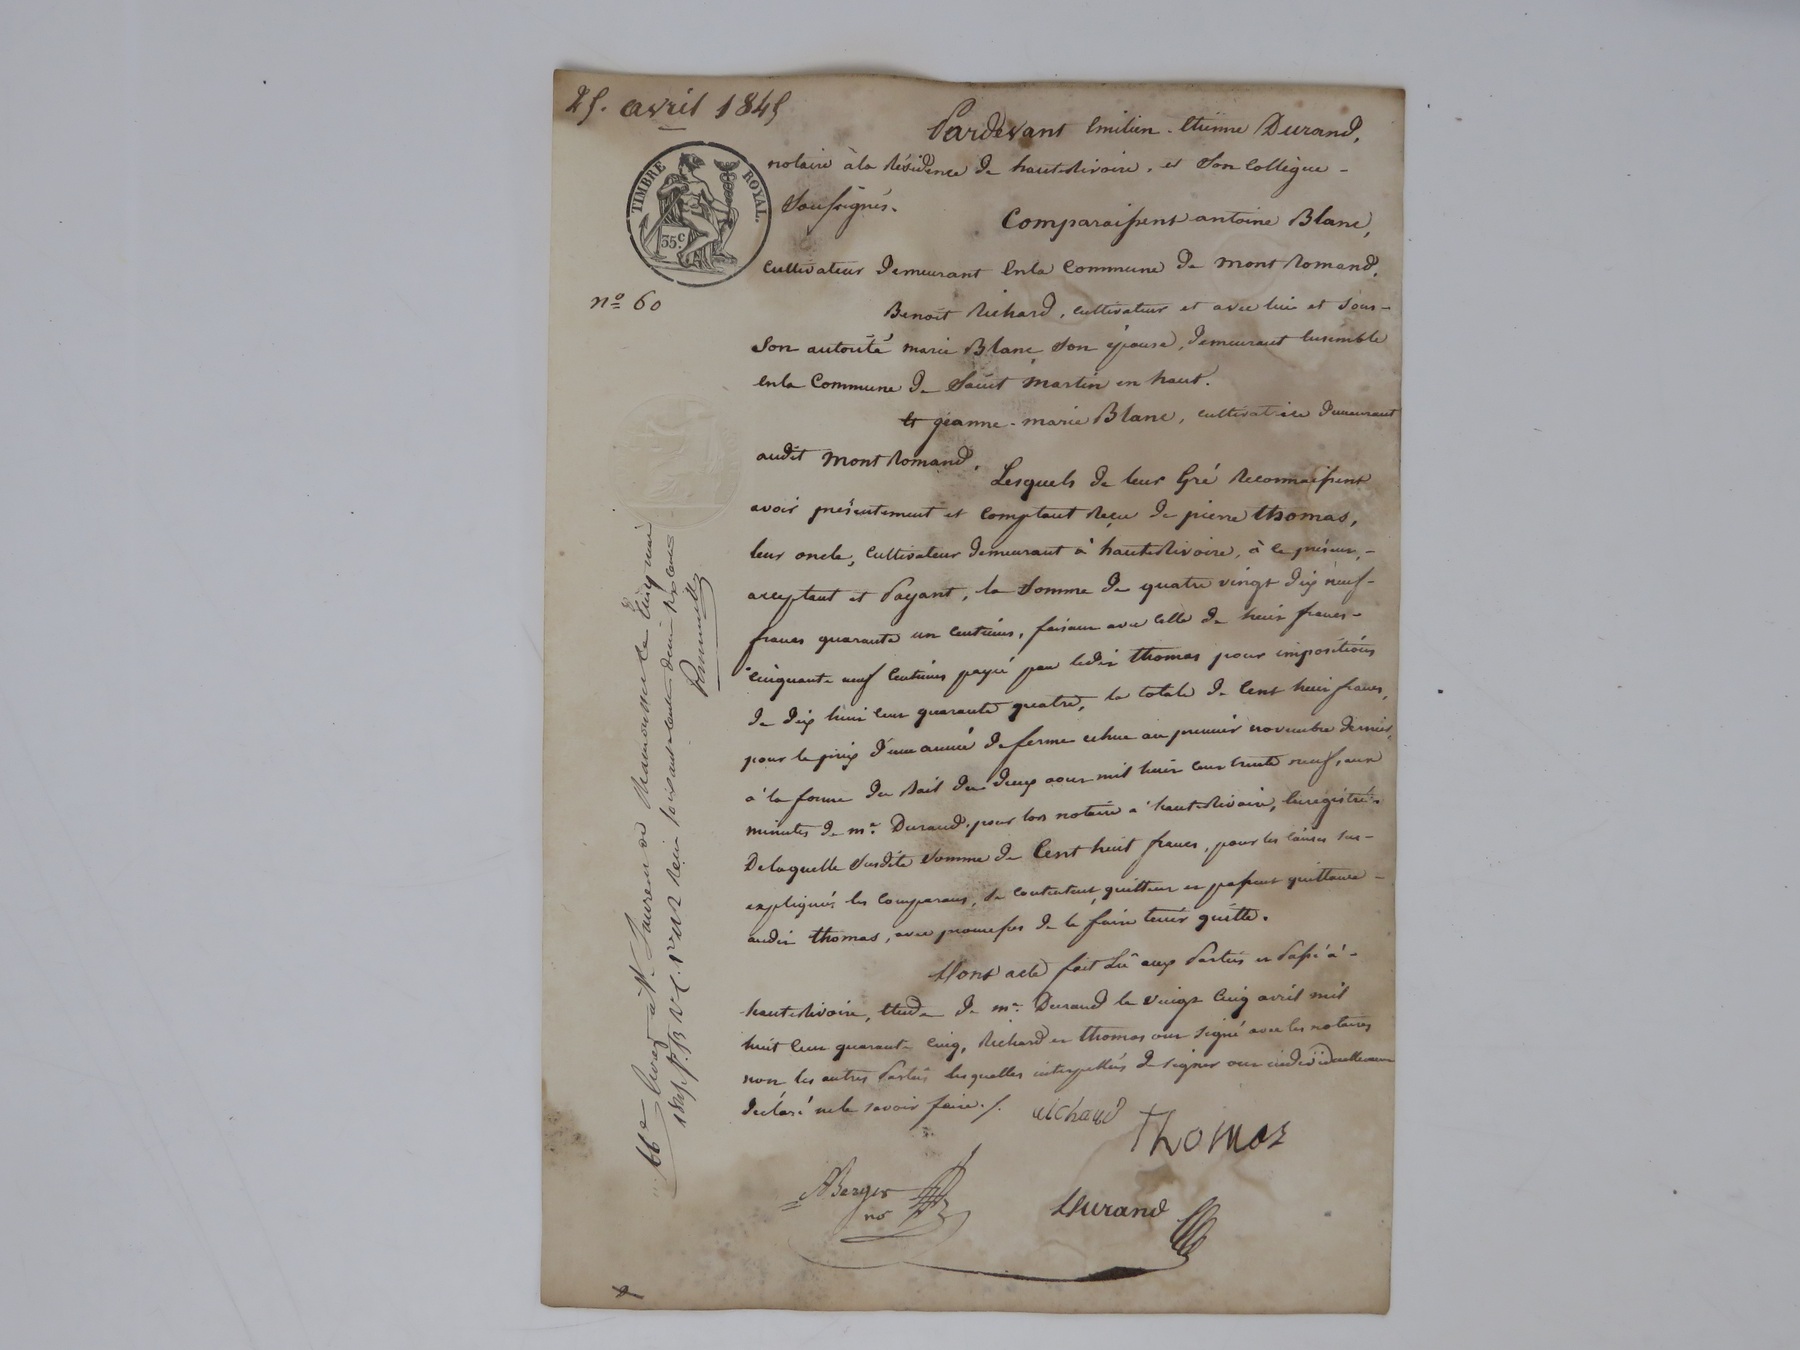 25. avril 1845
TIMBRE ROYAL.
35c
no 60
Pardevant Emilien-Etienne Durand,
notaire à la Résidence de hauterivoire, et Son Collègue -
Soussignés.
Comparaissent antoine Blanc,
cultivateur demeurant en la Commune de Montromand,
Benoit Richard, cultivateur et avec lui et sous-
Son autorité marie Blanc, Son épouse, demeurant ensemble
en la Commune de Saint Martin en haut.
Et jeanne-marie Blanc, cultivatrice demeurant
audit Montromand.
Lesquels de leur Gré Reconnaissent
avoir présentement et comptant Reçu de pierre thomas,
leur oncle, cultivateur demeurant à hauterivoire, à ce présent, -
acceptant et Payant, la Somme de quatre vingt dix neuf-
francs quarante un centimes, faisant avec celle de huit francs-
cinquante neuf centimes payée par ledit thomas pour impositions
de dix huit cent quarante quatre, la totale de Cent huit francs,
pour le prix d'une année de ferme échue au premier novembre dernier,
à la forme du Bail du deux aout mil huit cent trente neuf, aux
minutes de me. Durand, pour lors notaire à hauterivoire, Enregistré.
De laquelle susdite somme de Cent huit francs, pour les causes sus-
expliquées les comparans, se contentent, quittent et passent quittance -
audit thomas, avec promesses de le faire tenir quitte.
Dont acte fait Lu aux Parties et Passé à -
hauterivoire, Etude de me. Durand le vingt cinq avril mil
huit cent quarante cinq, Richard et thomas ont signé avec les notaires
non les autres Parties lesquelles interpellées de signer ont individuellement
déclaré ne le savoir faire./.
Richard
Thomas
ABerger
no
Durand
St. Laurent de Chamousset le cinq mai
1845